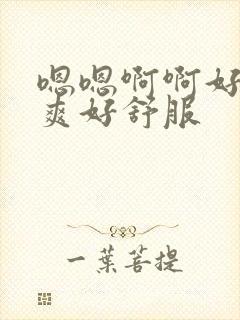 嗯嗯啊啊好
爽好舒服
一葉菩提